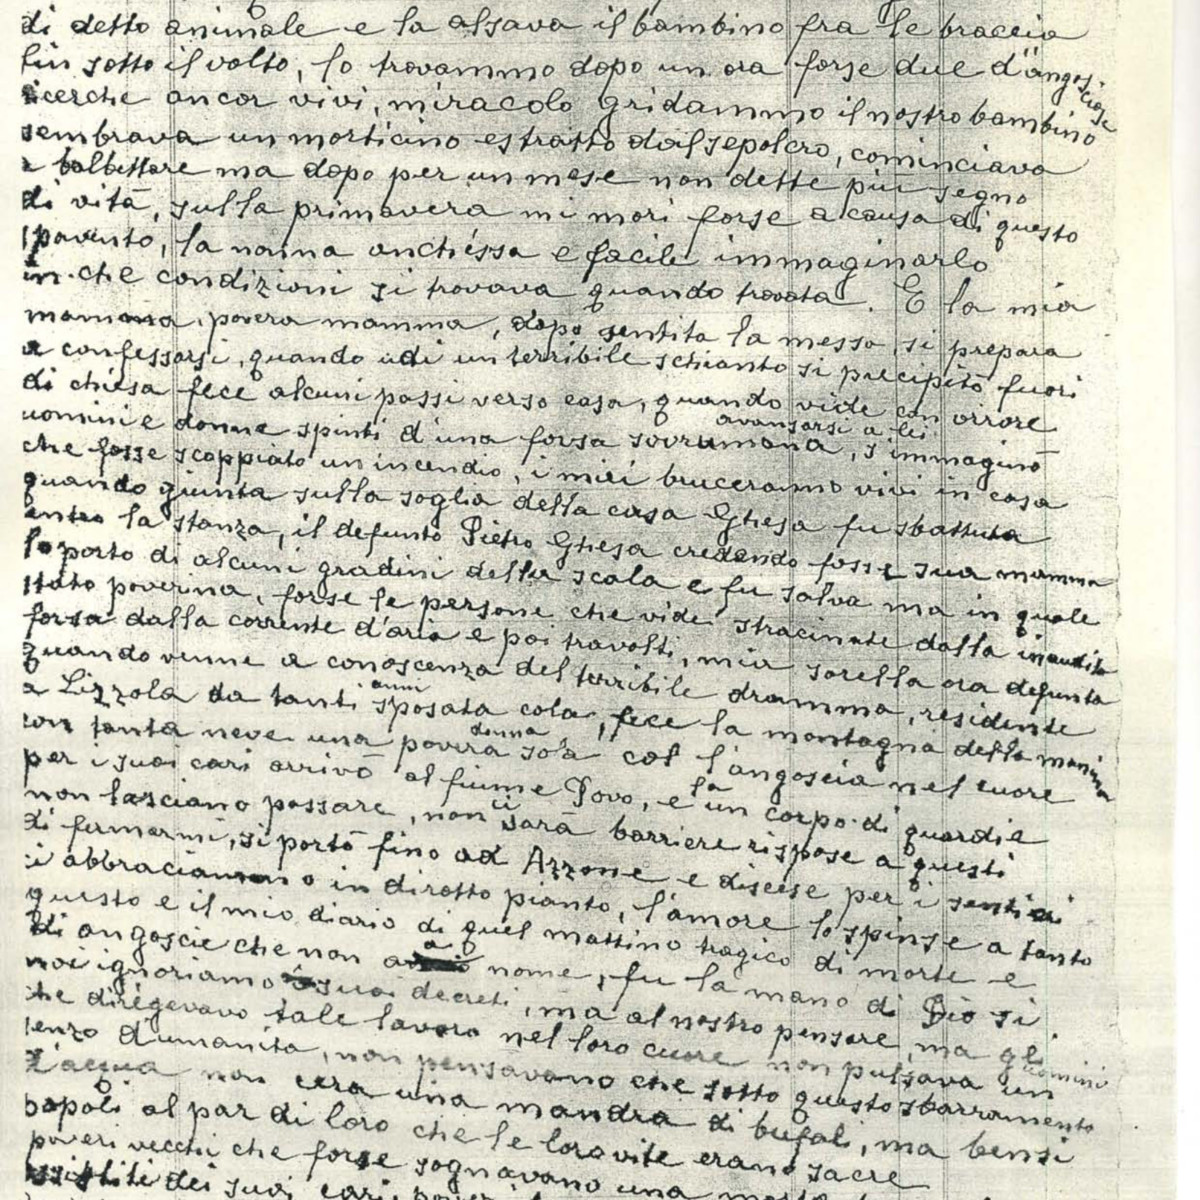 di detto animale e la alsava il bambino fra le braccia
fin sotto il volto, lo trovammo dopo un ora forse due d'angosciose
ricerche ancor vivi, miracolo gridammo il nostro bambino
sembrava un morticino estratto dal sepolcro, cominciava
a balbettare ma dopo per un mese non dette più segno
di vità, sulla primavera mi morì forse a causa di questo
spavento, la nonna anch'essa e facile immaginarlo
in che condizioni si trovava quando trovata. E la mia
mamma, povera mamma, dopo sentita la messa, si prepara
a confessarsi, quando udì un terribile schianto si precipitò fuori
di chiesa fece alcuni passi verso casa, quando vide con orrore
avansarsi a lei
uomini e donne spinti d'una forsa sovrumana, s'immaginò
che fosse scoppiato un incendio, i miei bruceranno vivi in casa
quando giunta sulla soglia della casa Ghesa fu sbattuta
entro la stanza, il defunto Pietro Ghesa credendo fosse sua mamma
la portò di alcuni gradini della scala e fu salva ma in quale
stato poverina, forse le persone che vide stracinate dalla inaudita
forsa dalla corrente d'aria e poi travolti, mia sorella ora defunta
quando venne a conoscenza del terribile dramma, residente
a Lizzola da tanti anni sposata colà, fece la montagna della manina
con tanta neve una povera donna sola col l'angoscia nel cuore
per i suoi cari arrivò al fiume Povo, e la un corpo di guardie
non lasciano passare, non ci sarà barriere rispose a questi
di fermarmi, si portò fino ad Azzone e discese per i sentieri
ci abbraciammo in dirotto pianto, l'amore lo spinse a tanto
questo e il mio diario di quel mattino tragico di morte e
di angoscie che non a nome, fu la mano di Dio si
noi ignoriamo i suoi decreti, ma al nostro pensare, ma gli uomini
che dirègevano tale lavoro nel loro cuore non pulsava un
senzo d'umanità, non pensavano che sotto questo sbarramento
d'acqua non cera una mandra di bufali, ma bensì
popoli al par di loro che le loro vite erano sacre
poveri vecchi che forse sognavano una morte
assistiti dei suoi cari